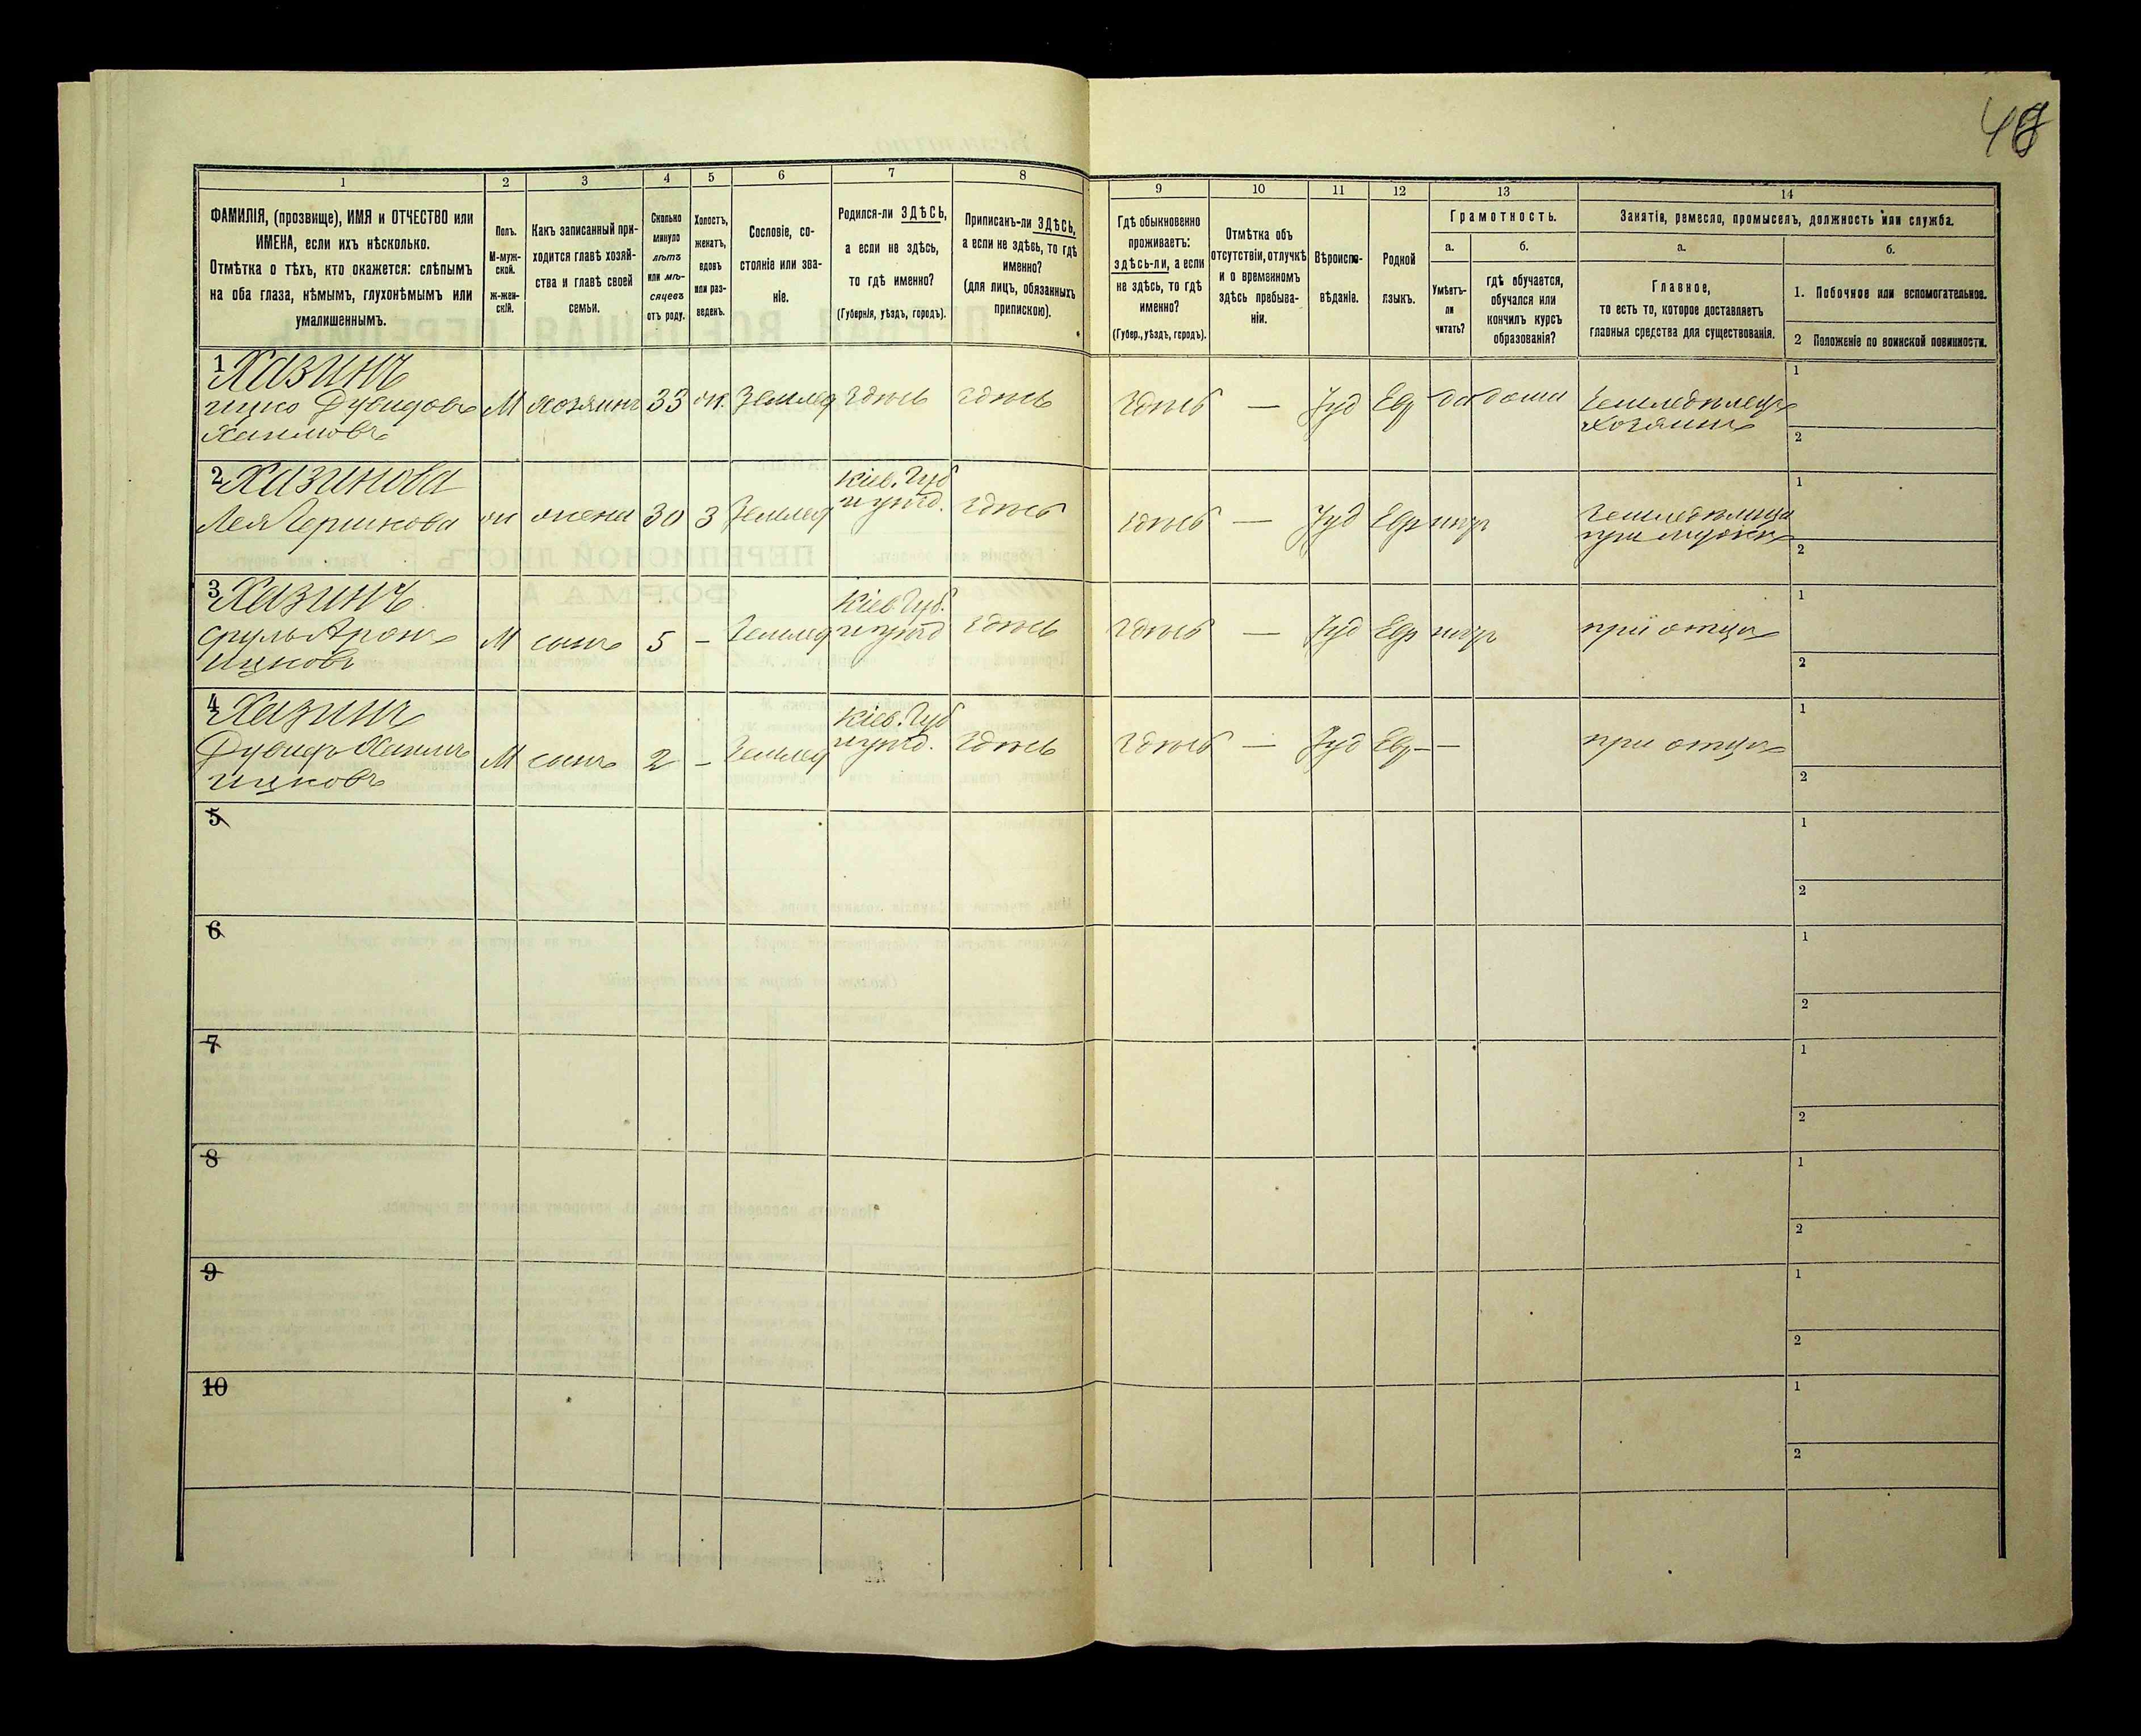 48
1
2
3
4
5
6
7
8
9
10
11
12
13
14
ФАМИЛІЯ, (прозвище), ИМЯ и ОТЧЕСТВО или
ИМЕНА, если ихъ нѣсколько.
Отмѣтка о тѣхъ, кто окажется: слѣпымъ
на оба глаза, нѣмымъ, глухонѣмымъ или
умалишеннымъ.
Полъ.
М-муж-
ской.
Ж-жен-
скій.
Какъ записанный при-
ходится главѣ хозяй-
ства и главѣ своей
семьи.
Сколько
минуло
лѣтъ
или мѣ-
сяцевъ
отъ роду.
Холостъ,
женатъ,
вдовъ
или раз-
веденъ.
Сословіе, со-
стояніе или зва-
ніе.
Родился-ли ЗДѢСЬ,
а если не здѣсь,
то гдѣ именно?
(Губернія, уѣздъ, городъ).
Приписанъ-ли ЗДѢСЬ,
а если не здѣсь, то гдѣ
именно?
(для лицъ, обязанныхъ
припискою).
Гдѣ обыкновенно
проживаетъ:
здѣсь-ли, а если
не здѣсь, то гдѣ
именно?
(Губер., уѣздъ, городъ).
Отмѣтка объ
отсутствіи, отлучкѣ
и о временномъ
здѣсь пребыва-
ніи.
Вѣроиспо-
вѣданіе.
Родной
языкъ.
Грамотность.
а.
б.
Умѣетъ-
ли
читать?
гдѣ обучается,
обучался или
кончилъ курсъ
образованія?
Занятія, ремесло, промыселъ, должность или служба.
а.
б.
Главное,
то есть то, которое доставляетъ
главныя средства для существованія.
1. Побочное или вспомогательное.
2 Положеніе по воинской повинности.
1 Хазинъ
ицко Дувидовъ М хозяинъ 33 ж. Землед здѣсь здѣсь здѣсь — Iуд Евр да дома Земледѣлецъ
Хаимовъ хозяинъ
1
2
2 Хазинова Кіев. Губ
Лея Гершкова ж жена 30 З Землед и уѣзд. здѣсь здѣсь — Iуд Евр нѣтъ Земледѣлица
при мужѣ
1
2
3 Хазинъ Кіев. Губ.
Сруль Аронъ М сынъ 5 – Землед и уѣзд здѣсь здѣсь — Iуд Евр нѣтъ при отцѣ
ицковъ
1
2
4 Хазинъ Кіев. Губ
Дувидъ Хаимъ М сынъ 2 – Землед и уѣзд. здѣсь здѣсь — Iуд Евр – — при отцѣ
ицковъ
1
2
5
1
2
6
1
2
7
1
2
8
1
2
9
1
2
10
1
2